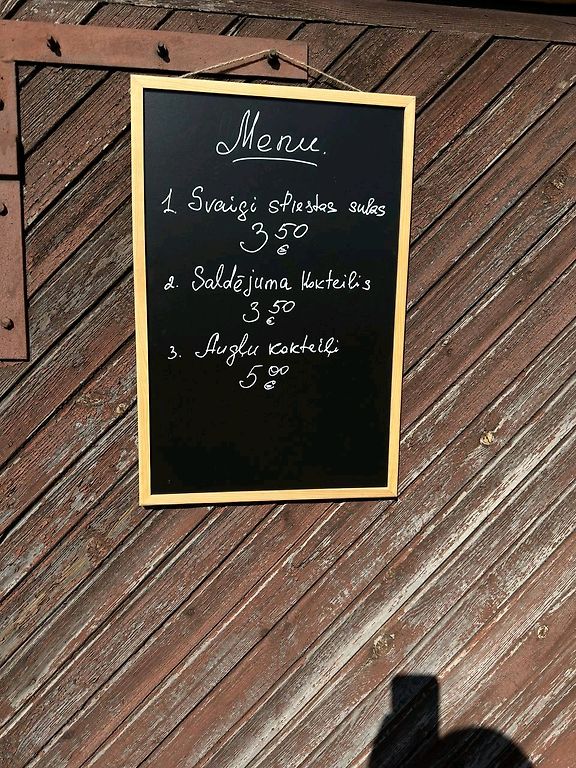 Menu.
1. Svaigi spiestas sulas
3 50 €
2. Saldējuma kokteilis
3 50 €
3. Augļu kokteiļi
5 00 €